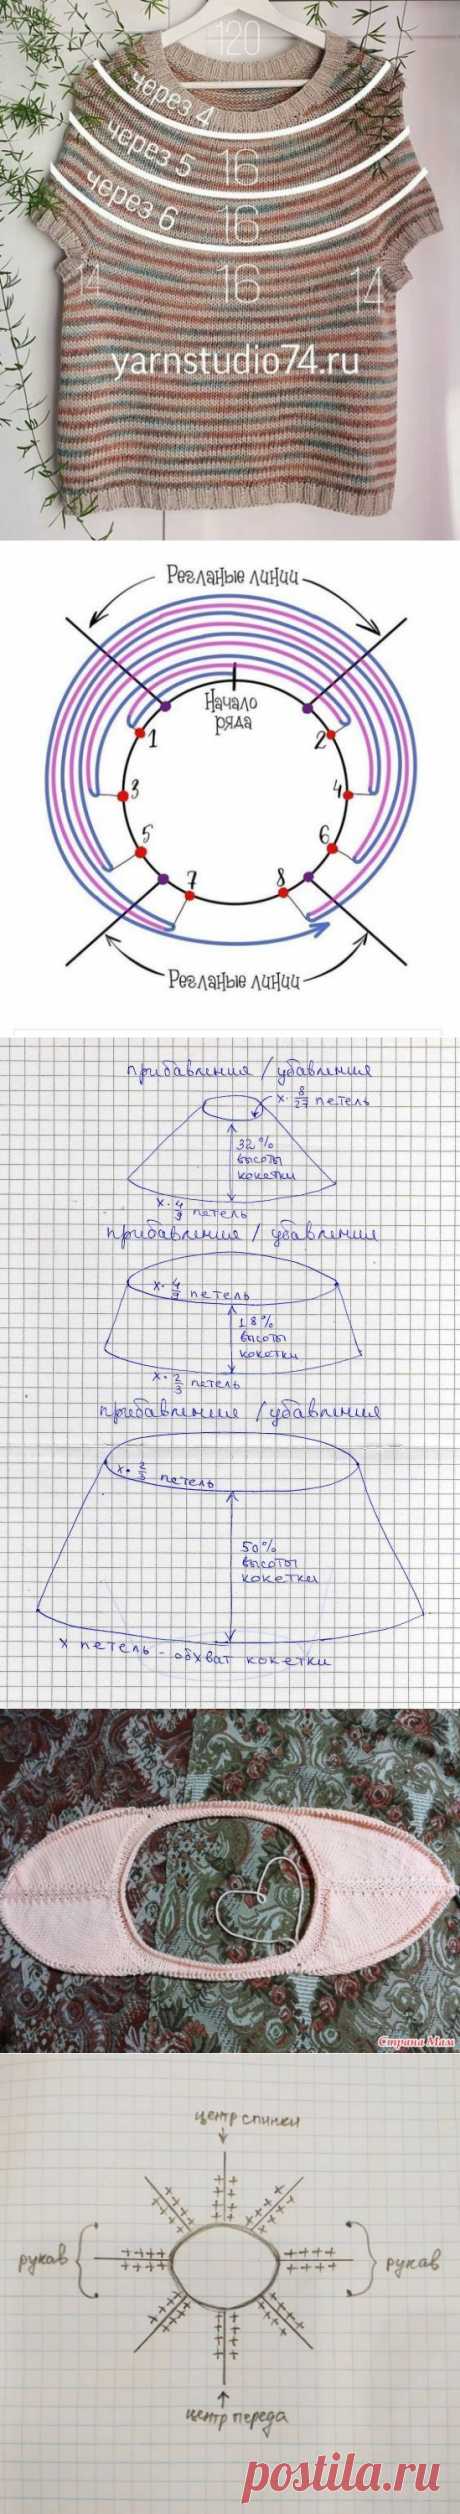 120
через 4
16
через 5
16
через 6
14
16
14
yarnstudio74.ru
Регланые линии
Начало
ряда
1
2
3
4
5
6
7
8
Регланые линии
прибавления / убавления
x · 8/27 петель
32%
высоты
кокетки
x · 4/9 петель
прибавления / убавления
x · 4/9 петель
18%
высоты
кокетки
x · 2/3 петель
прибавления / убавления
x · 2/3 петель
50%
высоты
кокетки
x петель - обхват кокетки
Страна Мам
центр спинки
рукав
рукав
центр переда
postila.ru